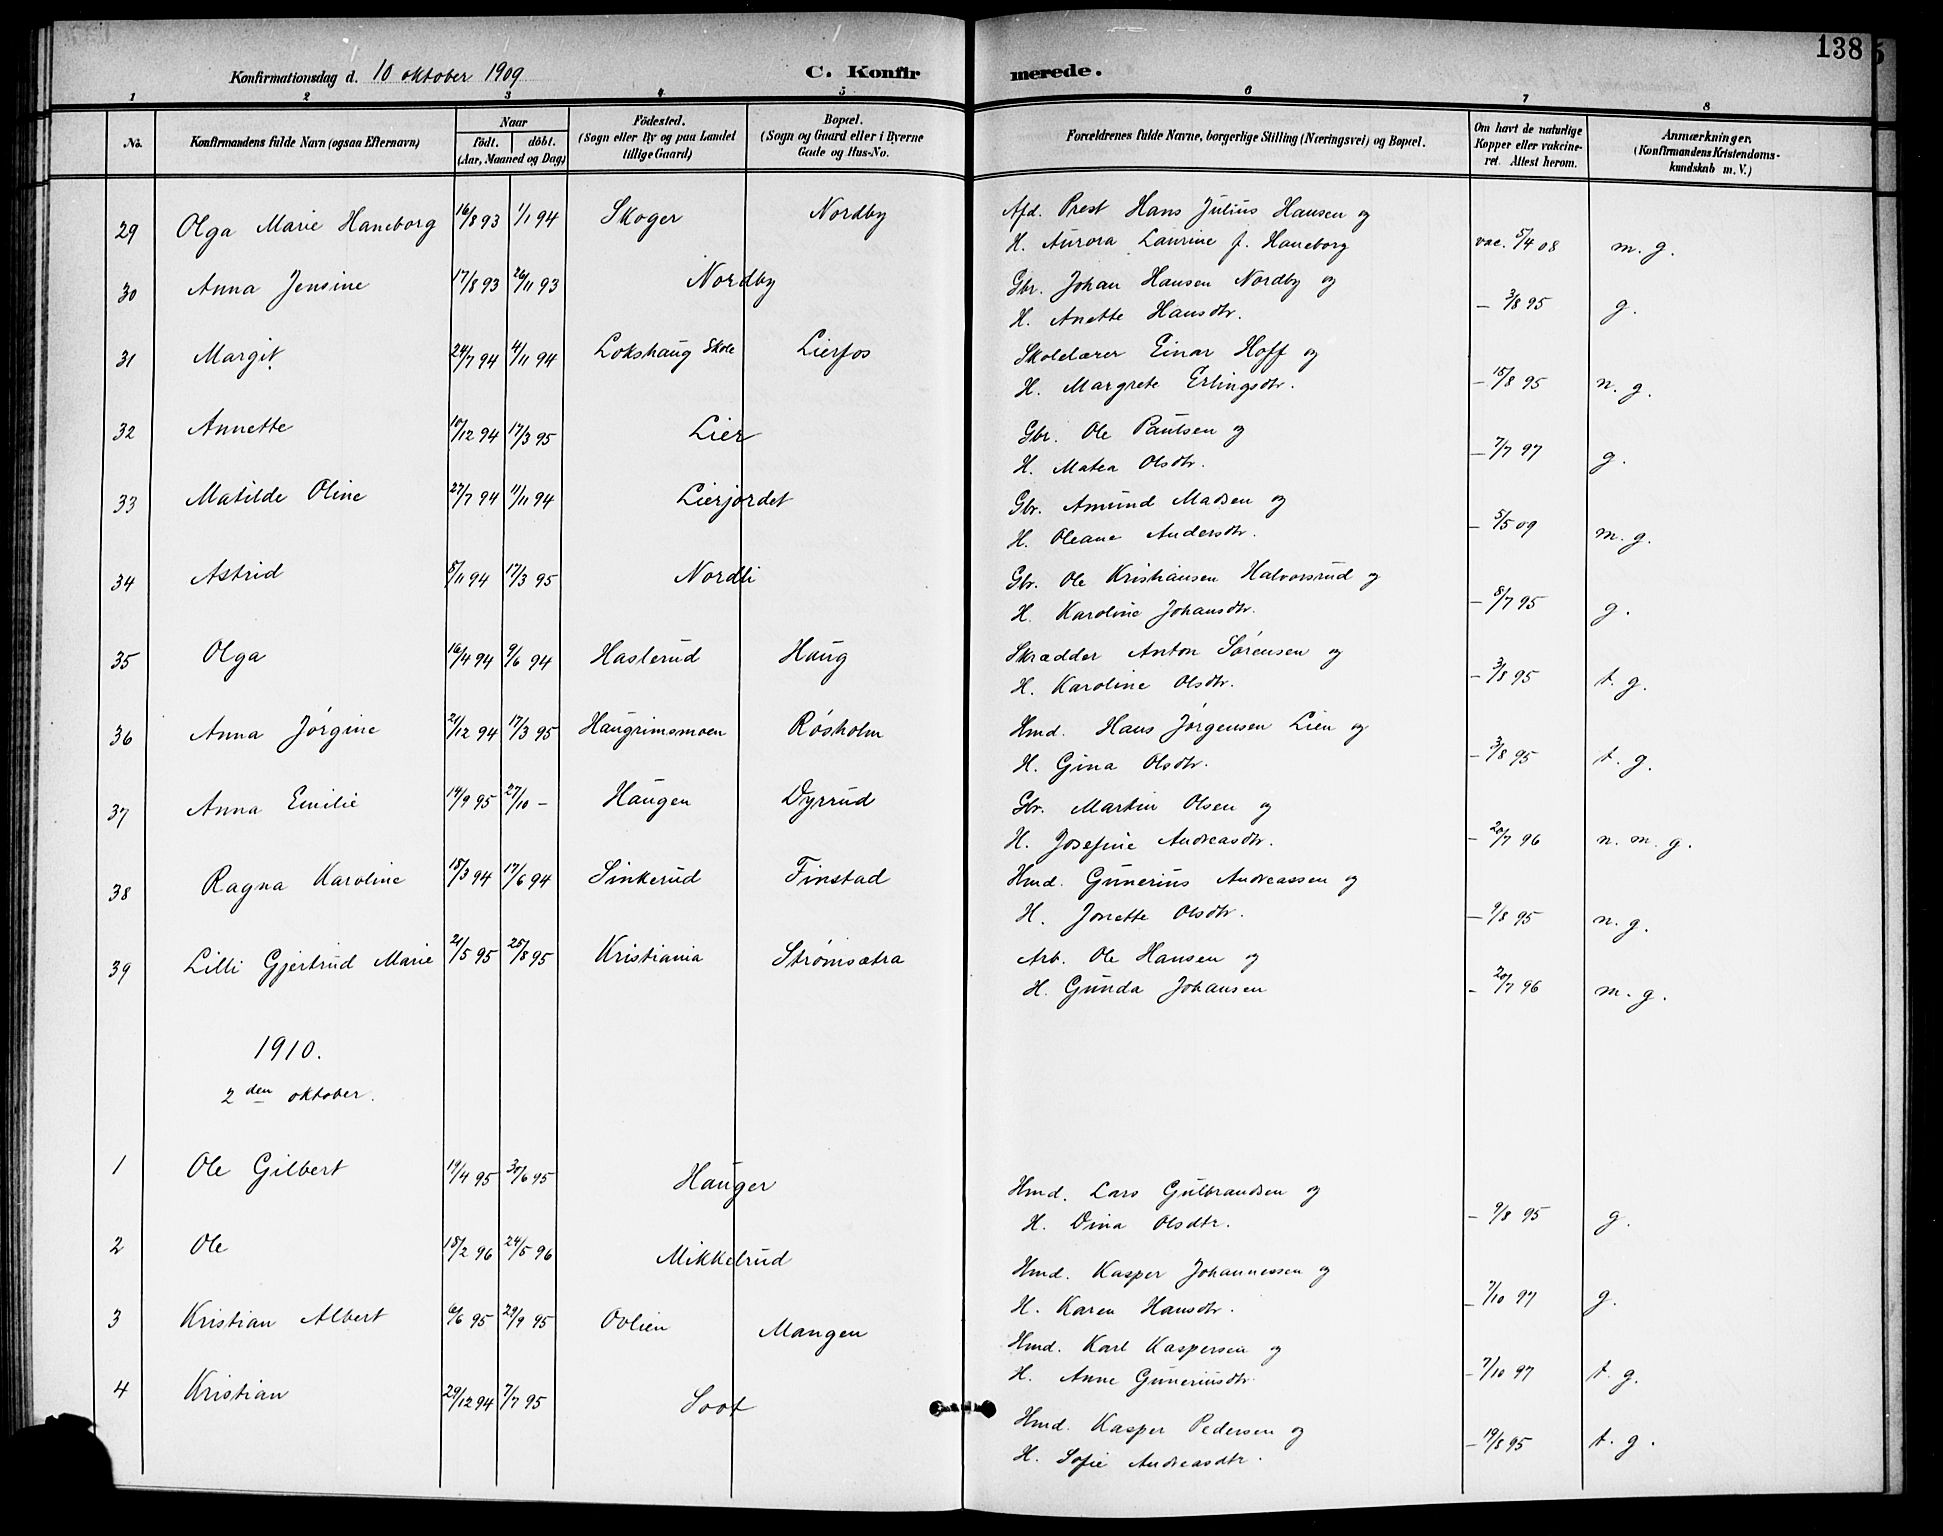 138
Konfirmationsdag d. 10 oktober 1909
C. Konfirmerede.
1 2 3 4 5 6 7 8
No. Konfirmandens fulde Navn (ogsaa Efternavn) Naar födt. döbt. (Aar, Maaned og Dag) Födested. (Sogn eller By og paa Landet tillige Gaard) Bopæl. (Sogn og Gaard eller i Byerne Gade og Hus-No. Forældrenes fulde Navne, borgerlige Stilling (Næringsvei) og Bopæl. Om havt de naturlige Kopper eller vakcineret. Attest herom. Anmærkninger. (Konfirmandens Kristendomskundskab m. V.)
29 Olga Marie Haneborg 16/8 93 1/1 94 Skoger Nordby Afd. Prest Hans Julius Hansen og
H. Aurora Laurine f. Haneborg vac. 5/4 08 m. g.
30 Anna Jensine 17/8 93 26/11 93 Nordby Gbr. Johan Hansen Nordby og
H. Anette Hansdtr. – 3/8 95 g.
31 Margit 24/7 94 4/11 94 Lokshaug Skole Lierfos Skolelærer Einar Hoff og
H. Margrete Erlingsdtr. – 15/8 95 n. g.
32 Annette 10/12 94 17/3 95 Lier Gbr. Ole Paulsen og
H. Matea Olsdtr. – 7/7 97 g.
33 Matilde Oline 27/7 94 11/11 94 Lierjordet Gbr. Amund Madsen og
H. Oleane Andersdtr. – 5/5 09 m. g.
34 Astrid 8/11 94 17/3 95 Nordli Gbr. Ole Kristiansen Halvorsrud og
H. Karoline Johansdtr. – 8/7 95 g.
35 Olga 16/4 94 9/6 94 Haslerud Haug Skrædder Anton Sørensen og
H. Karoline Olsdtr. – 3/8 95 t. g.
36 Anna Jørgine 21/12 94 17/3 95 Haugrimsmoen Røsholm Hmd. Hans Jørgensen Lien og
H. Gina Olsdtr. – 3/8 95 t. g.
37 Anna Emilie 14/9 95 27/10 – Haugen Dyrrud Gbr. Martin Olsen og
H. Josefine Andreasdtr. – 20/7 96 n. m. g.
38 Ragna Karoline 18/3 94 17/6 94 Sinkerud Finstad Hmd. Gunerius Andreassen og
H. Jonette Olsdtr. – 9/8 95 n. g.
39 Lilli Gjertrud Marie 21/5 95 25/8 95 Kristiania Strømsætra Arb. Ole Hansen og
H. Gunda Johansen – 20/7 96 m. g.
1910.
2den oktober.
1 Ole Gilbert 19/4 95 30/6 95 Hauger Hmd. Lars Gulbrandsen og
H. Dina Olsdtr. – 9/8 95 g.
2 Ole 18/2 96 24/5 96 Mikkelrud Hmd. Kasper Johannessen og
H. Karen Hansdtr. – 7/10 97 g.
3 Kristian Albert 6/6 95 29/9 95 Ovlien Mangen Hmd. Karl Kaspersen og
H. Anne Guneriusdtr. – 7/10 97 t. g.
4 Kristian 29/12 94 7/7 95 Soot Hmd. Kasper Pedersen og
H. Sofie Andreasdtr. – 19/8 95 t. g.